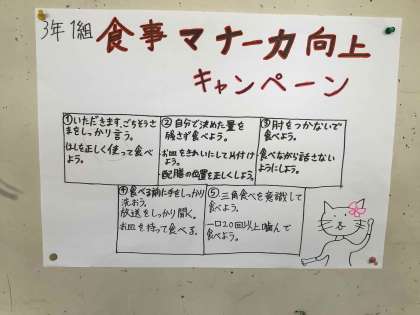 3年1組 食事マナー力向上
キャンペーン
①いただきます、ごちそうさ
まをしっかり言う。
はしを正しく使って食べ
よう。
②自分で決めた量を
残さず食べよう。
お皿をきれいにして片付け
よう。
・配膳の位置を正しくしよう。
③肘をつかないで
食べよう。
食べながら話さない
ようにしよう。
④食べる前に手をしっかり
洗おう。
放送をしっかり聞く。
お皿を持って食べる。
⑤三角食べを意識して
食べよう。
一口20回以上噛んで
食べよう。